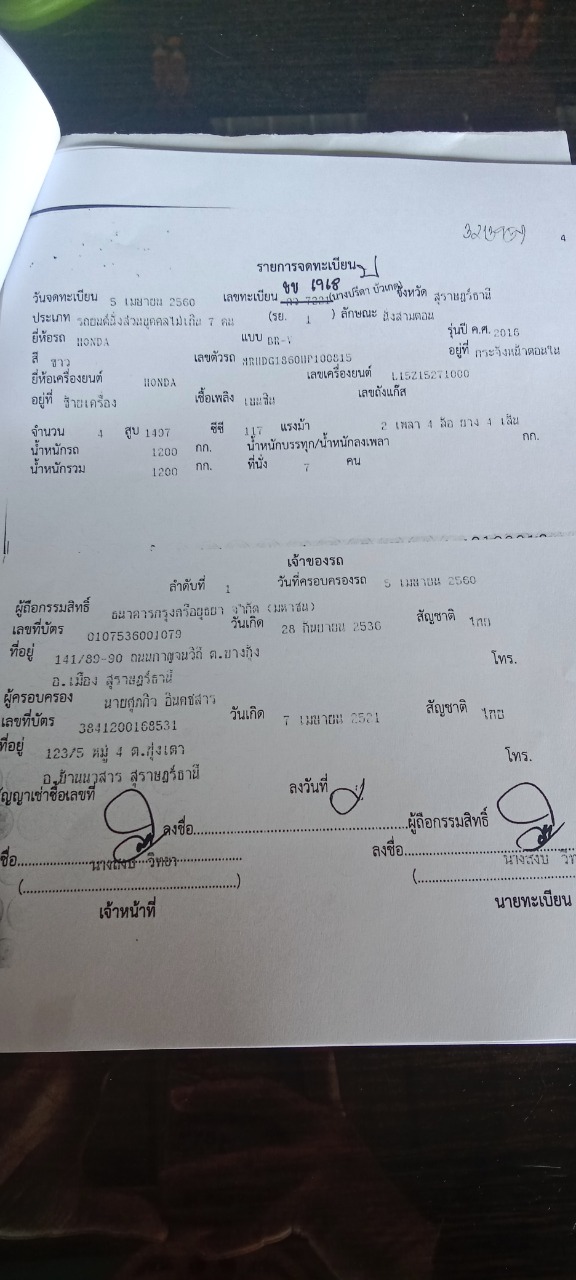 4
รายการจดทะเบียน
ขข 1968
วันจดทะเบียน 5 เมษายน 2560 เลขทะเบียน (นางปรีดา บัวเกตุ) จังหวัด สุราษฎร์ธานี
ประเภท รถยนต์นั่งส่วนบุคคลไม่เกิน 7 คน (รย. 1 ) ลักษณะ นั่งสามตอน
ยี่ห้อรถ HONDA แบบ BR-V รุ่นปี ค.ศ. 2016
สี ขาว เลขตัวรถ MRHDG1860HP100815 อยู่ที่ กระจังหน้าตอนใน
ยี่ห้อเครื่องยนต์ HONDA เลขเครื่องยนต์ L15Z15271000
อยู่ที่ ซ้ายเครื่อง เชื้อเพลิง เบนซิน เลขถังแก๊ส
จำนวน 4 สูบ 1497 ซีซี 117 แรงม้า 2 เพลา 4 ล้อ ยาง 4 เส้น
น้ำหนักรถ 1200 กก. น้ำหนักบรรทุก/น้ำหนักลงเพลา กก.
น้ำหนักรวม 1200 กก. ที่นั่ง 7 คน
เจ้าของรถ
ลำดับที่ 1 วันที่ครอบครองรถ 5 เมษายน 2560
ผู้ถือกรรมสิทธิ์ ธนาคารกรุงศรีอยุธยา จำกัด (มหาชน)
เลขที่บัตร 0107536001079 วันเกิด 28 กันยายน 2536 สัญชาติ ไทย
ที่อยู่ 141/89-90 ถนนกาญจนวิถี ต.บางกุ้ง โทร.
อ.เมือง สุราษฎร์ธานี
ผู้ครอบครอง นายศุภกิว อินคชสาร
เลขที่บัตร 3841200168531 วันเกิด 7 เมษายน 2521 สัญชาติ ไทย
ที่อยู่ 123/5 หมู่ 4 ต.ทุ่งเตา โทร.
อ.บ้านนาสาร สุราษฎร์ธานี
ัญญาเช่าซื้อเลขที่ ลงวันที่
ลงชื่อ ผู้ถือกรรมสิทธิ์
ชื่อ นางสงบ วิทยา ลงชื่อ นางสงบ วิท
( ) (
เจ้าหน้าที่ นายทะเบียน